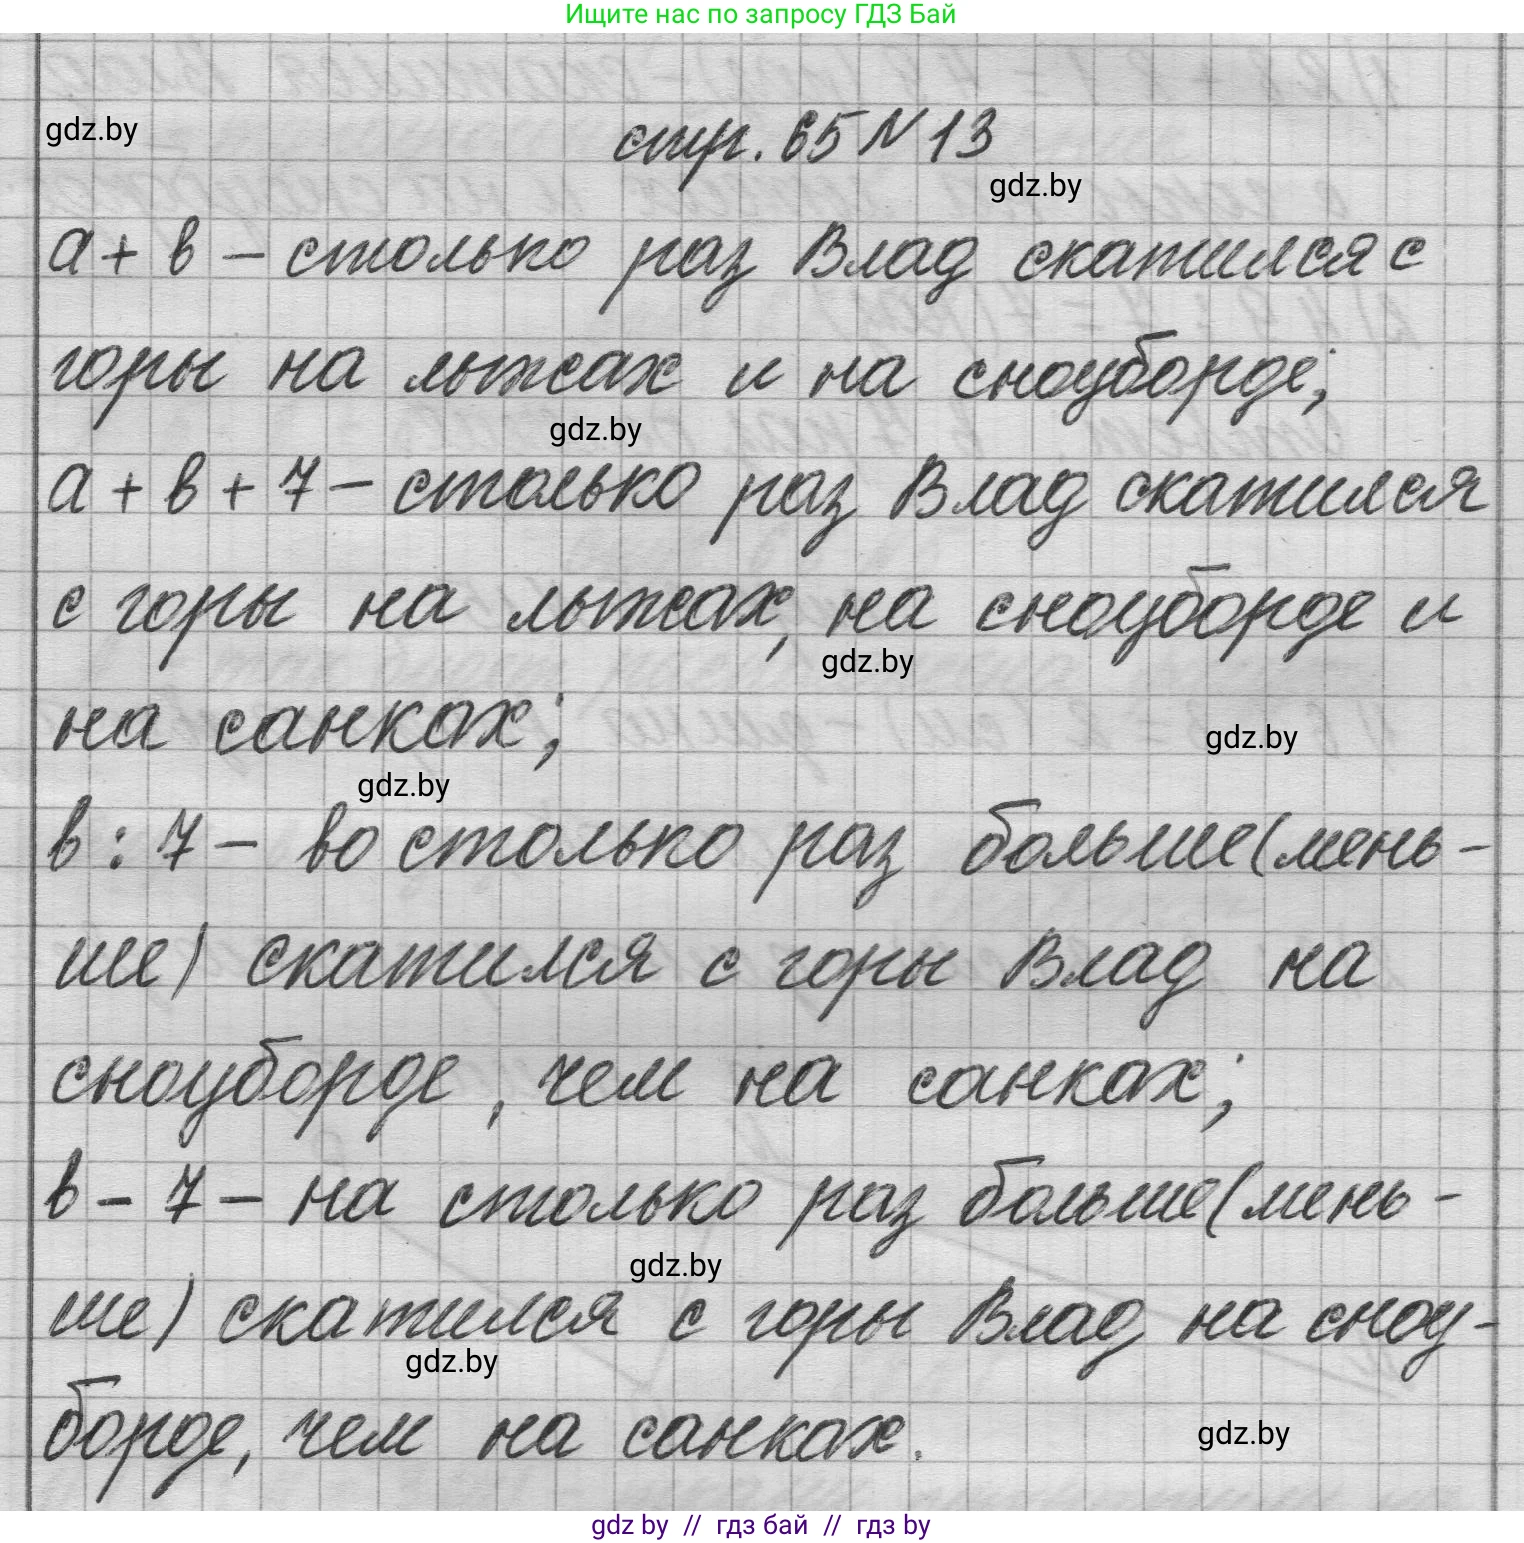 Ищите нас по запросу ГДЗ Бай
gdz.by
стр. 65 N 13
gdz.by
а + в – столько раз Влад скатился с
горы на лыжах и на сноуборде;
gdz.by
а + в + 7 – столько раз Влад скатился
с горы на лыжах, на сноуборде и
gdz.by
на санках;
gdz.by
gdz.by
в : 7 – во столько раз больше (мень-
ше) скатился с горы Влад на
сноуборде, чем на санках;
в – 7 – на столько раз больше (мень-
gdz.by
ше) скатился с горы Влад на сноу-
gdz.by
борде, чем на санках.
gdz.by
gdz by // гдз бай // гдз by